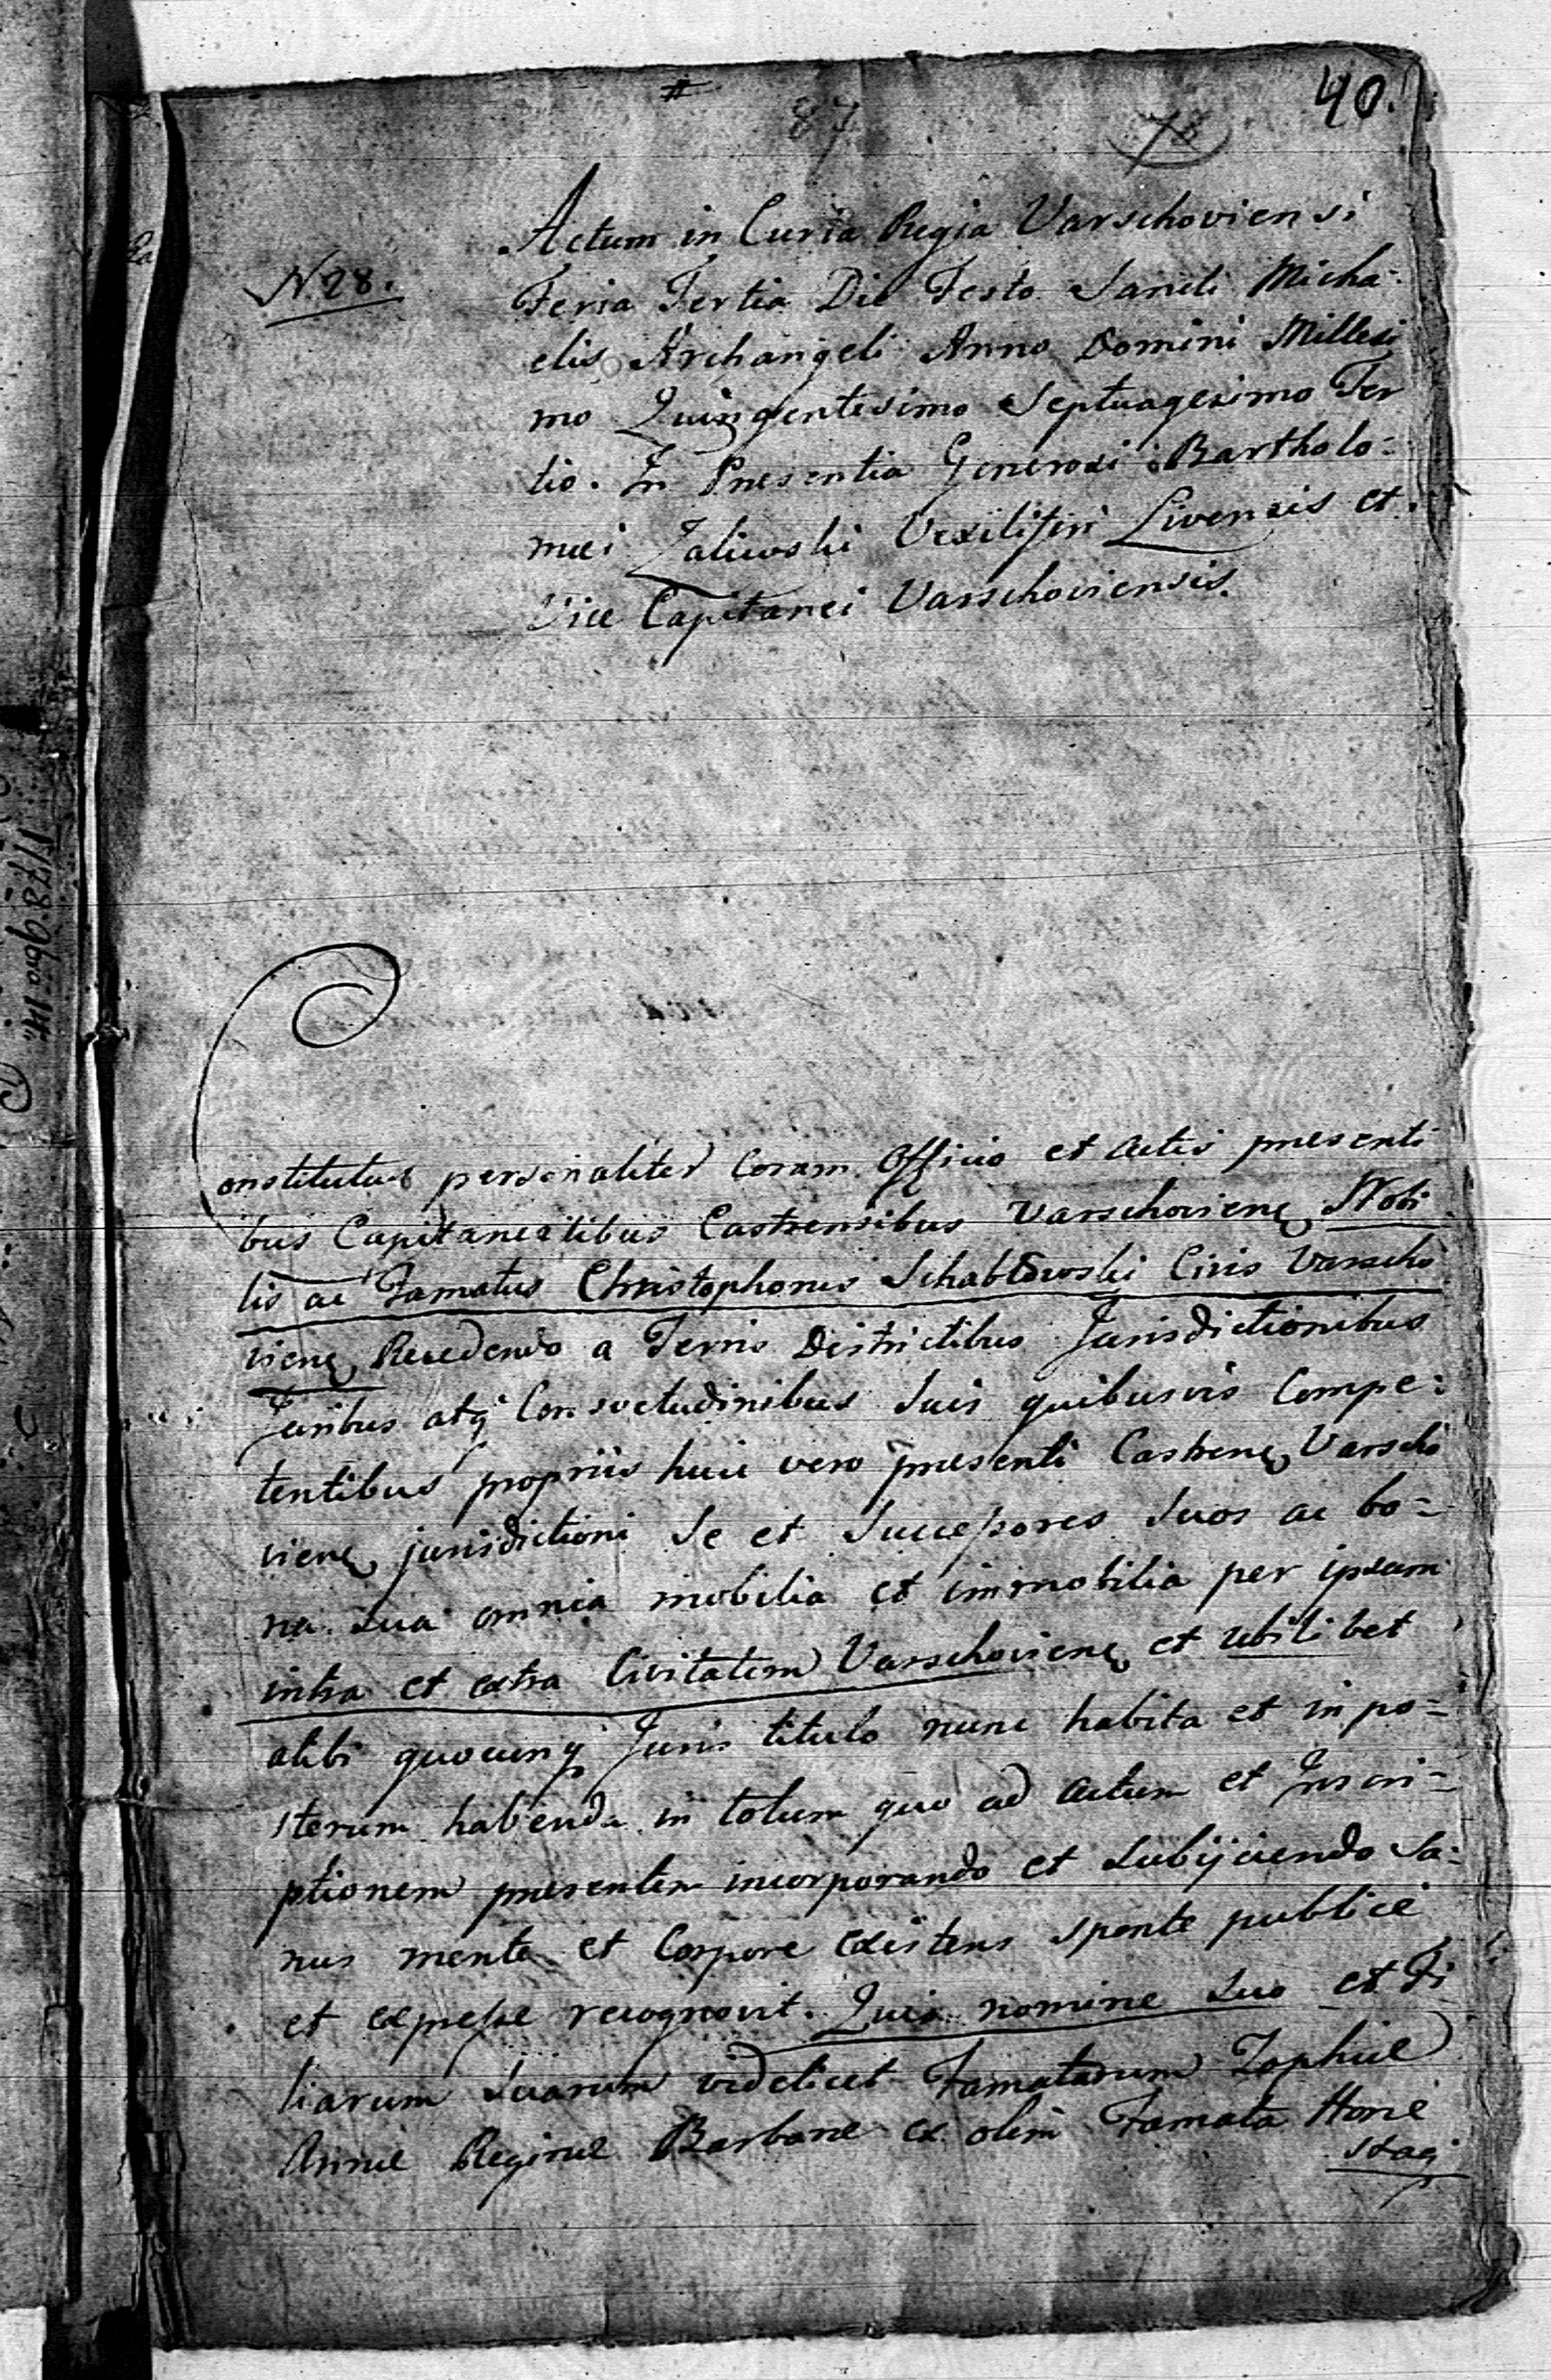 40.
87
N. 28.
Actum in Curia Regia Varschoviensi
Feria Tertia Die Festo Sancti Micha-
elis Archangeli Anno Domini Millesi
mo Quingentesimo Septuagesimo Ter
tio. In Presentia Generosi Bartholo=
mei Zaliwski Vexiliferi Livensis et
Vice Capitanei Varschoviensis.
onstitutus personaliter coram Officio et actis presenti
bus Capitanealibus Castrensibus Varschovienę Nobi
lis ac Famatus Christophorus Schabłowski Civis Varscho
vienę Recedendo a Terris Districtibus Jurisdictionibus
Juribus atq Consvetudinibus Suis quibusvis Compe=
tentibus propriis huic vero presenti Castrenę Varscho
vienę jurisdictioni Se et Successores Suos ac bo=
na Sua omnia mobilia et immobilia per ipsum
intra et extra Civitatem Varschovienę et ubilibet
alibi quocunq Juris titulo nunc habita et in po=
sterum habenda in totum quo ad actum et Inscri=
ptionem presentem incorporando et Subijciendo Sa=
nus mente et Corpore existens sponte publice
et expresse recognovit. Quia nomine Suo et Fi
liarum Suarum videlicet Famatarum Zophiæ
Annæ Reginæ Barbaræ ex olim Famata Hone
staq
1778 9bro 14.